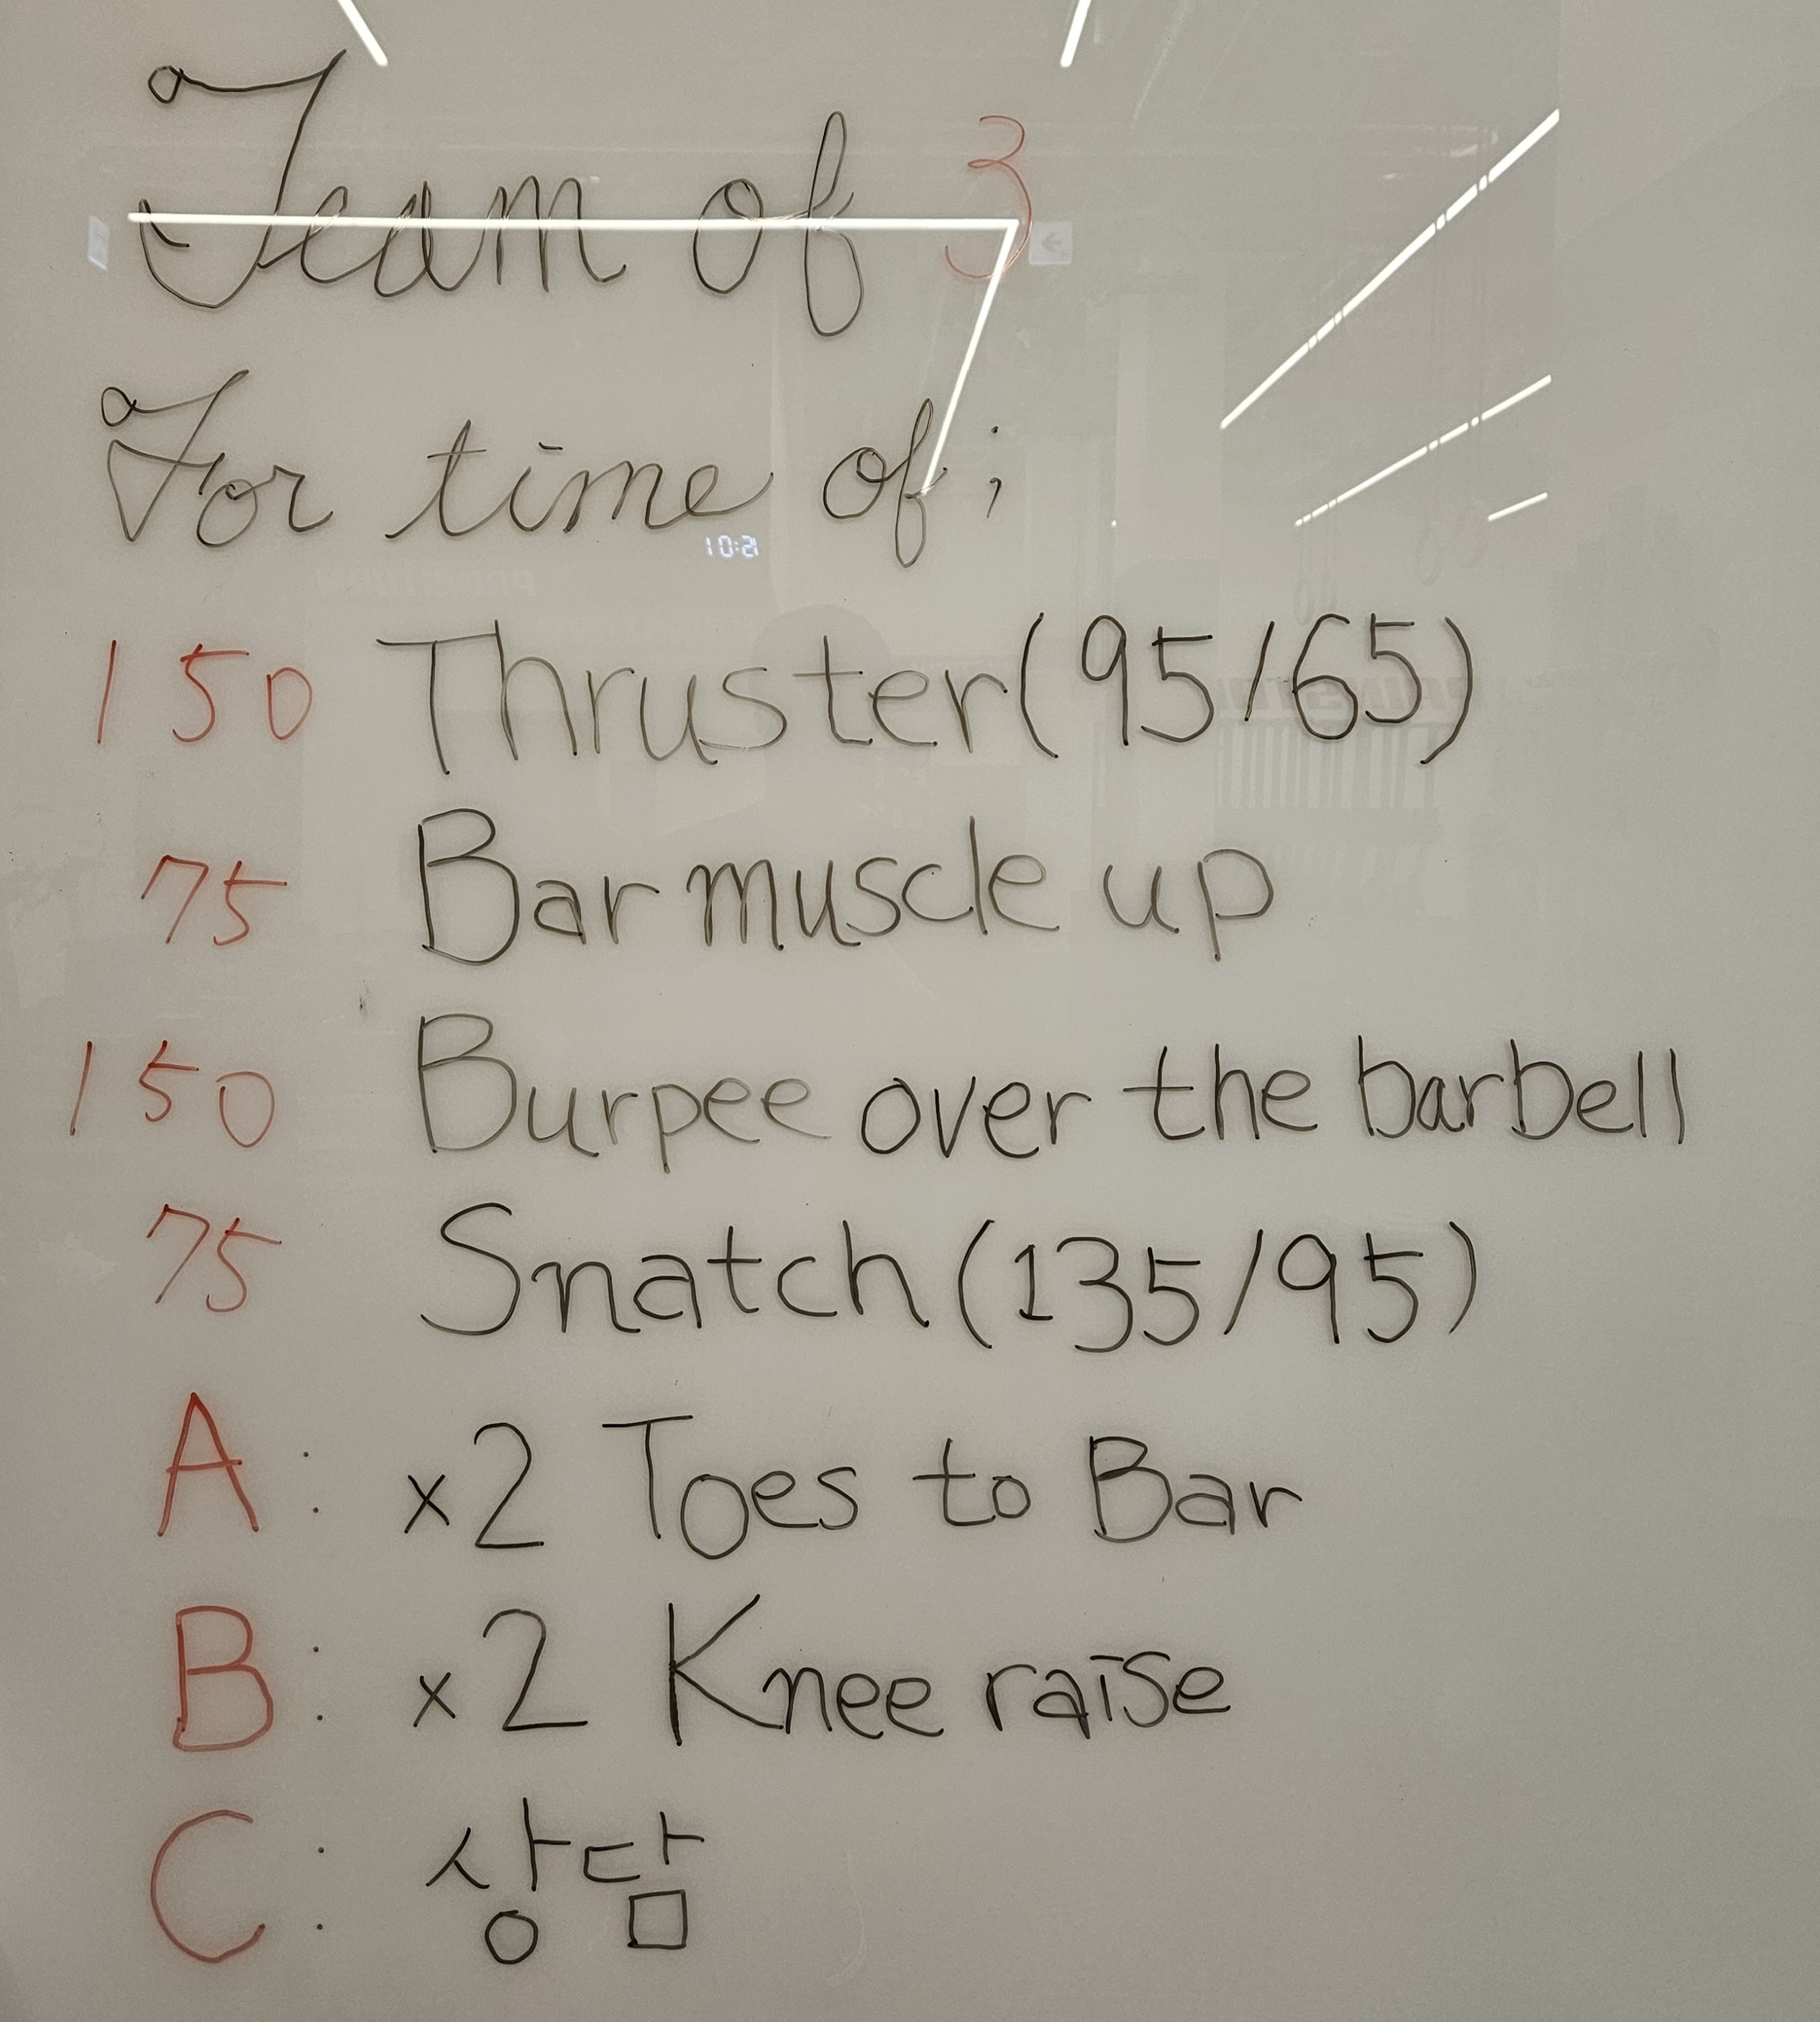 Team of 3
For time of;
150 Thruster(95/65)
75 Bar muscle up
150 Burpee over the barbell
75 Snatch(135/95)
A: x2 Toes to Bar
B: x2 Knee raise
C: 상담